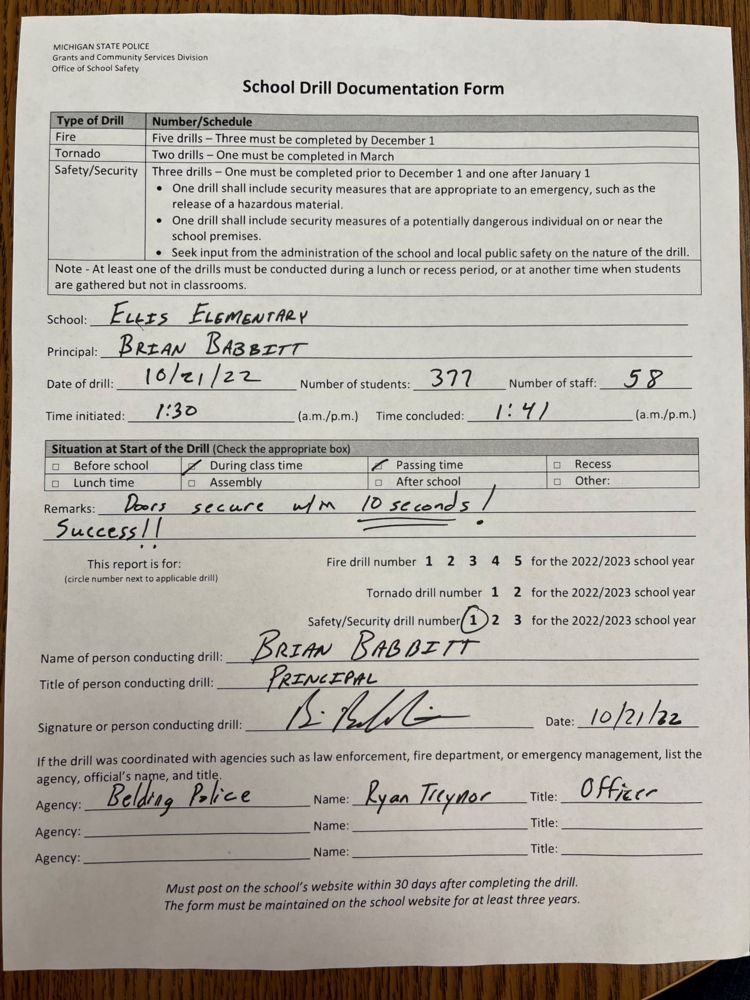 MICHIGAN STATE POLICE
Grants and Community Services Division
Office of School Safety
School Drill Documentation Form
Type of Drill Number/Schedule
Fire Five drills – Three must be completed by December 1
Tornado Two drills – One must be completed in March
Safety/Security Three drills – One must be completed prior to December 1 and one after January 1
• One drill shall include security measures that are appropriate to an emergency, such as the
release of a hazardous material.
• One drill shall include security measures of a potentially dangerous individual on or near the
school premises.
• Seek input from the administration of the school and local public safety on the nature of the drill.
Note - At least one of the drills must be conducted during a lunch or recess period, or at another time when students
are gathered but not in classrooms.
School: ELLIS ELEMENTARY
Principal: BRIAN BABBITT
Date of drill: 10/21/22 Number of students: 377 Number of staff: 58
Time initiated: 1:30 (a.m./p.m.) Time concluded: 1:41 (a.m./p.m.)
Situation at Start of the Drill (Check the appropriate box)
□ Before school ☑ During class time ☑ Passing time □ Recess
□ Lunch time □ Assembly □ After school □ Other:
Remarks: Doors secure w/in 10 seconds!
Success!!
This report is for: Fire drill number 1 2 3 4 5 for the 2022/2023 school year
(circle number next to applicable drill)
Tornado drill number 1 2 for the 2022/2023 school year
Safety/Security drill number 1 2 3 for the 2022/2023 school year
Name of person conducting drill: BRIAN BABBITT
Title of person conducting drill: PRINCIPAL
Signature or person conducting drill: Date: 10/21/22
If the drill was coordinated with agencies such as law enforcement, fire department, or emergency management, list the
agency, official's name, and title.
Agency: Belding Police Name: Ryan Treynor Title: Officer
Agency: Name: Title:
Agency: Name: Title:
Must post on the school's website within 30 days after completing the drill.
The form must be maintained on the school website for at least three years.